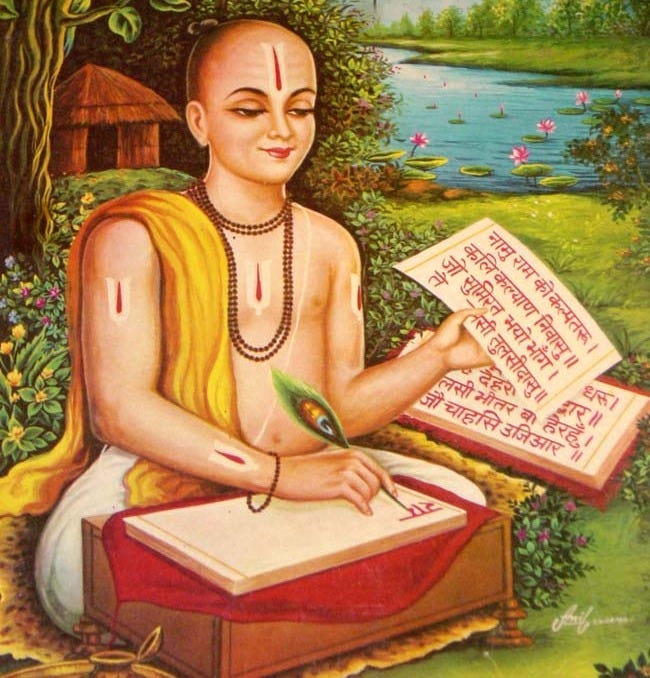 नामु राम को कल्पतरू ।
कलि कल्याण निवासु ॥
जौ सुमिरत भयो भाँग ।
ते सी तुलसीदासु ॥
धरू ।
देहरी द्वार ॥
लसी भीतर बा हेरहूँ ।
जौ चाहासि उजिआर ॥
रा